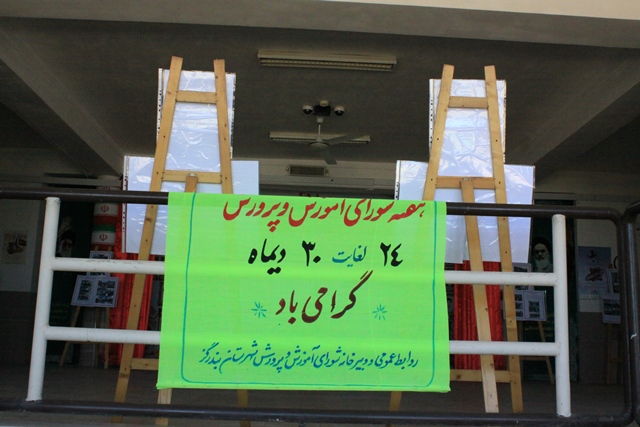 هفته شورای آموزش و پرورش
۲۴ لغایت ۳۰ دیماه
گرامی باد
روابط عمومی و دبیرخانه شورای آموزش و پرورش شهرستان بندرگز